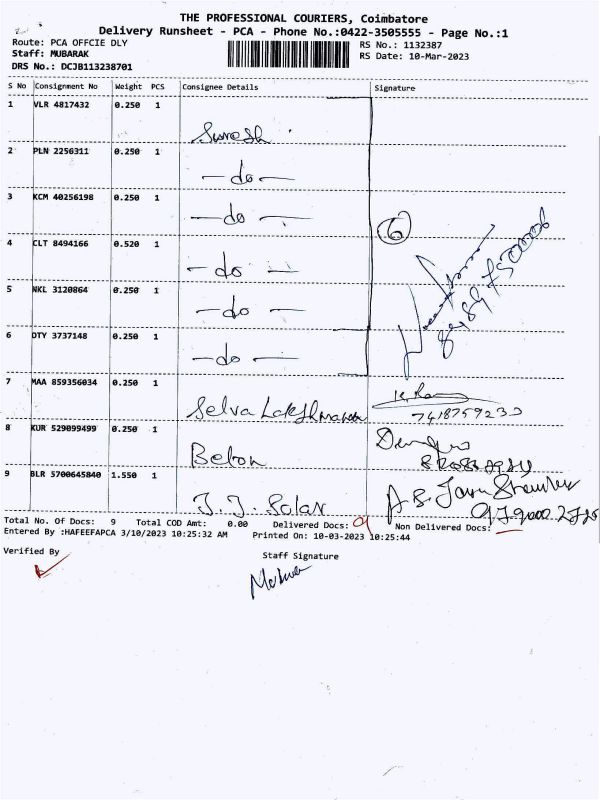 THE PROFESSIONAL COURIERS, Coimbatore
Delivery Runsheet - PCA - Phone No.:0422-3505555 - Page No.:1
Route: PCA OFFCIE DLY
RS No.: 1132387
Staff: MUBARAK
RS Date: 10-Mar-2023
DRS No.: DCJB113238701
S No Consignment No Weight PCS Consignee Details Signature
1 VLR 4817432 0.250 1
Suresh
2 PLN 2256311 0.250 1
- do -
3 KCM 40256198 0.250 1
- do -
6
4 CLT 8494166 0.520 1
- do -
5 NKL 3120864 0.250 1
- do -
6 DTY 3737148 0.250 1
- do -
7 MAA 859356034 0.250 1
Selva Lakshmanan
7418759233
8 KUR 529099499 0.250 1
Beton
9 BLR 5700645840 1.550 1
J. J. Solar
Total No. Of Docs: 9 Total COD Amt: 0.00 Delivered Docs: 9 Non Delivered Docs:
Entered By :HAFEEFAPCA 3/10/2023 10:25:32 AM Printed On: 10-03-2023 10:25:44
Verified By
Staff Signature